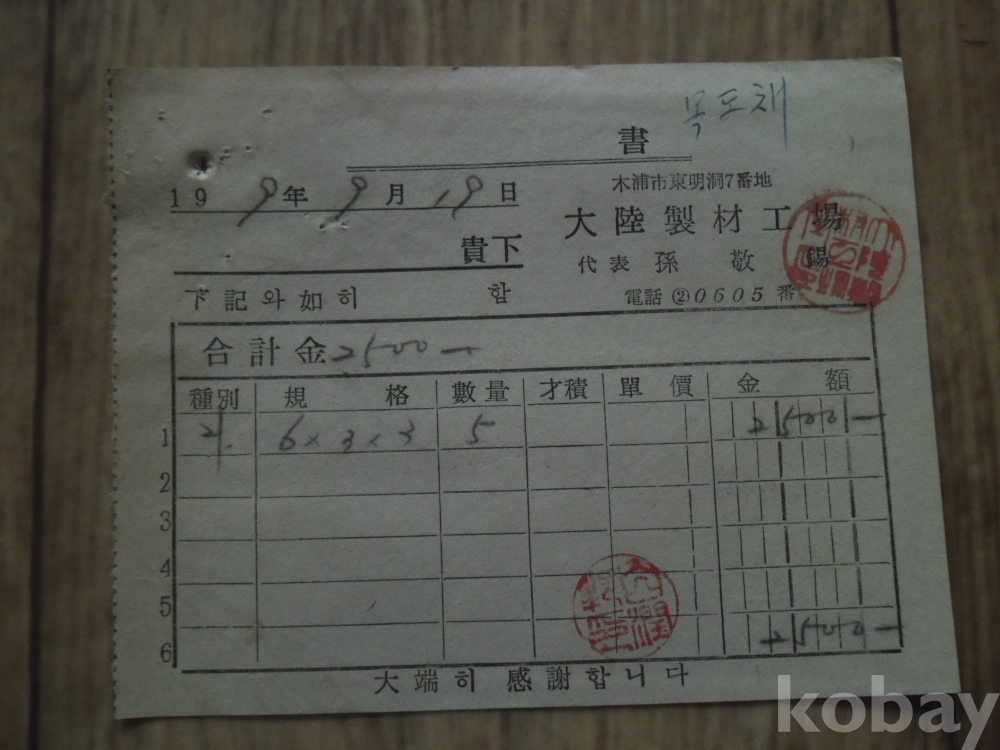 목도채
書
19 9年 9月 19日
木浦市東明洞7番地
大陸製材工場
貴下
代表 孫敬錫
下記와如히 함
電話②0605番
合計金 2500 一
種別 規格 數量 才積 單價 金額
1 6×3×3 5 2500 一
2
3
4
5
6 2500 一
大端히 感謝합니다
kobay